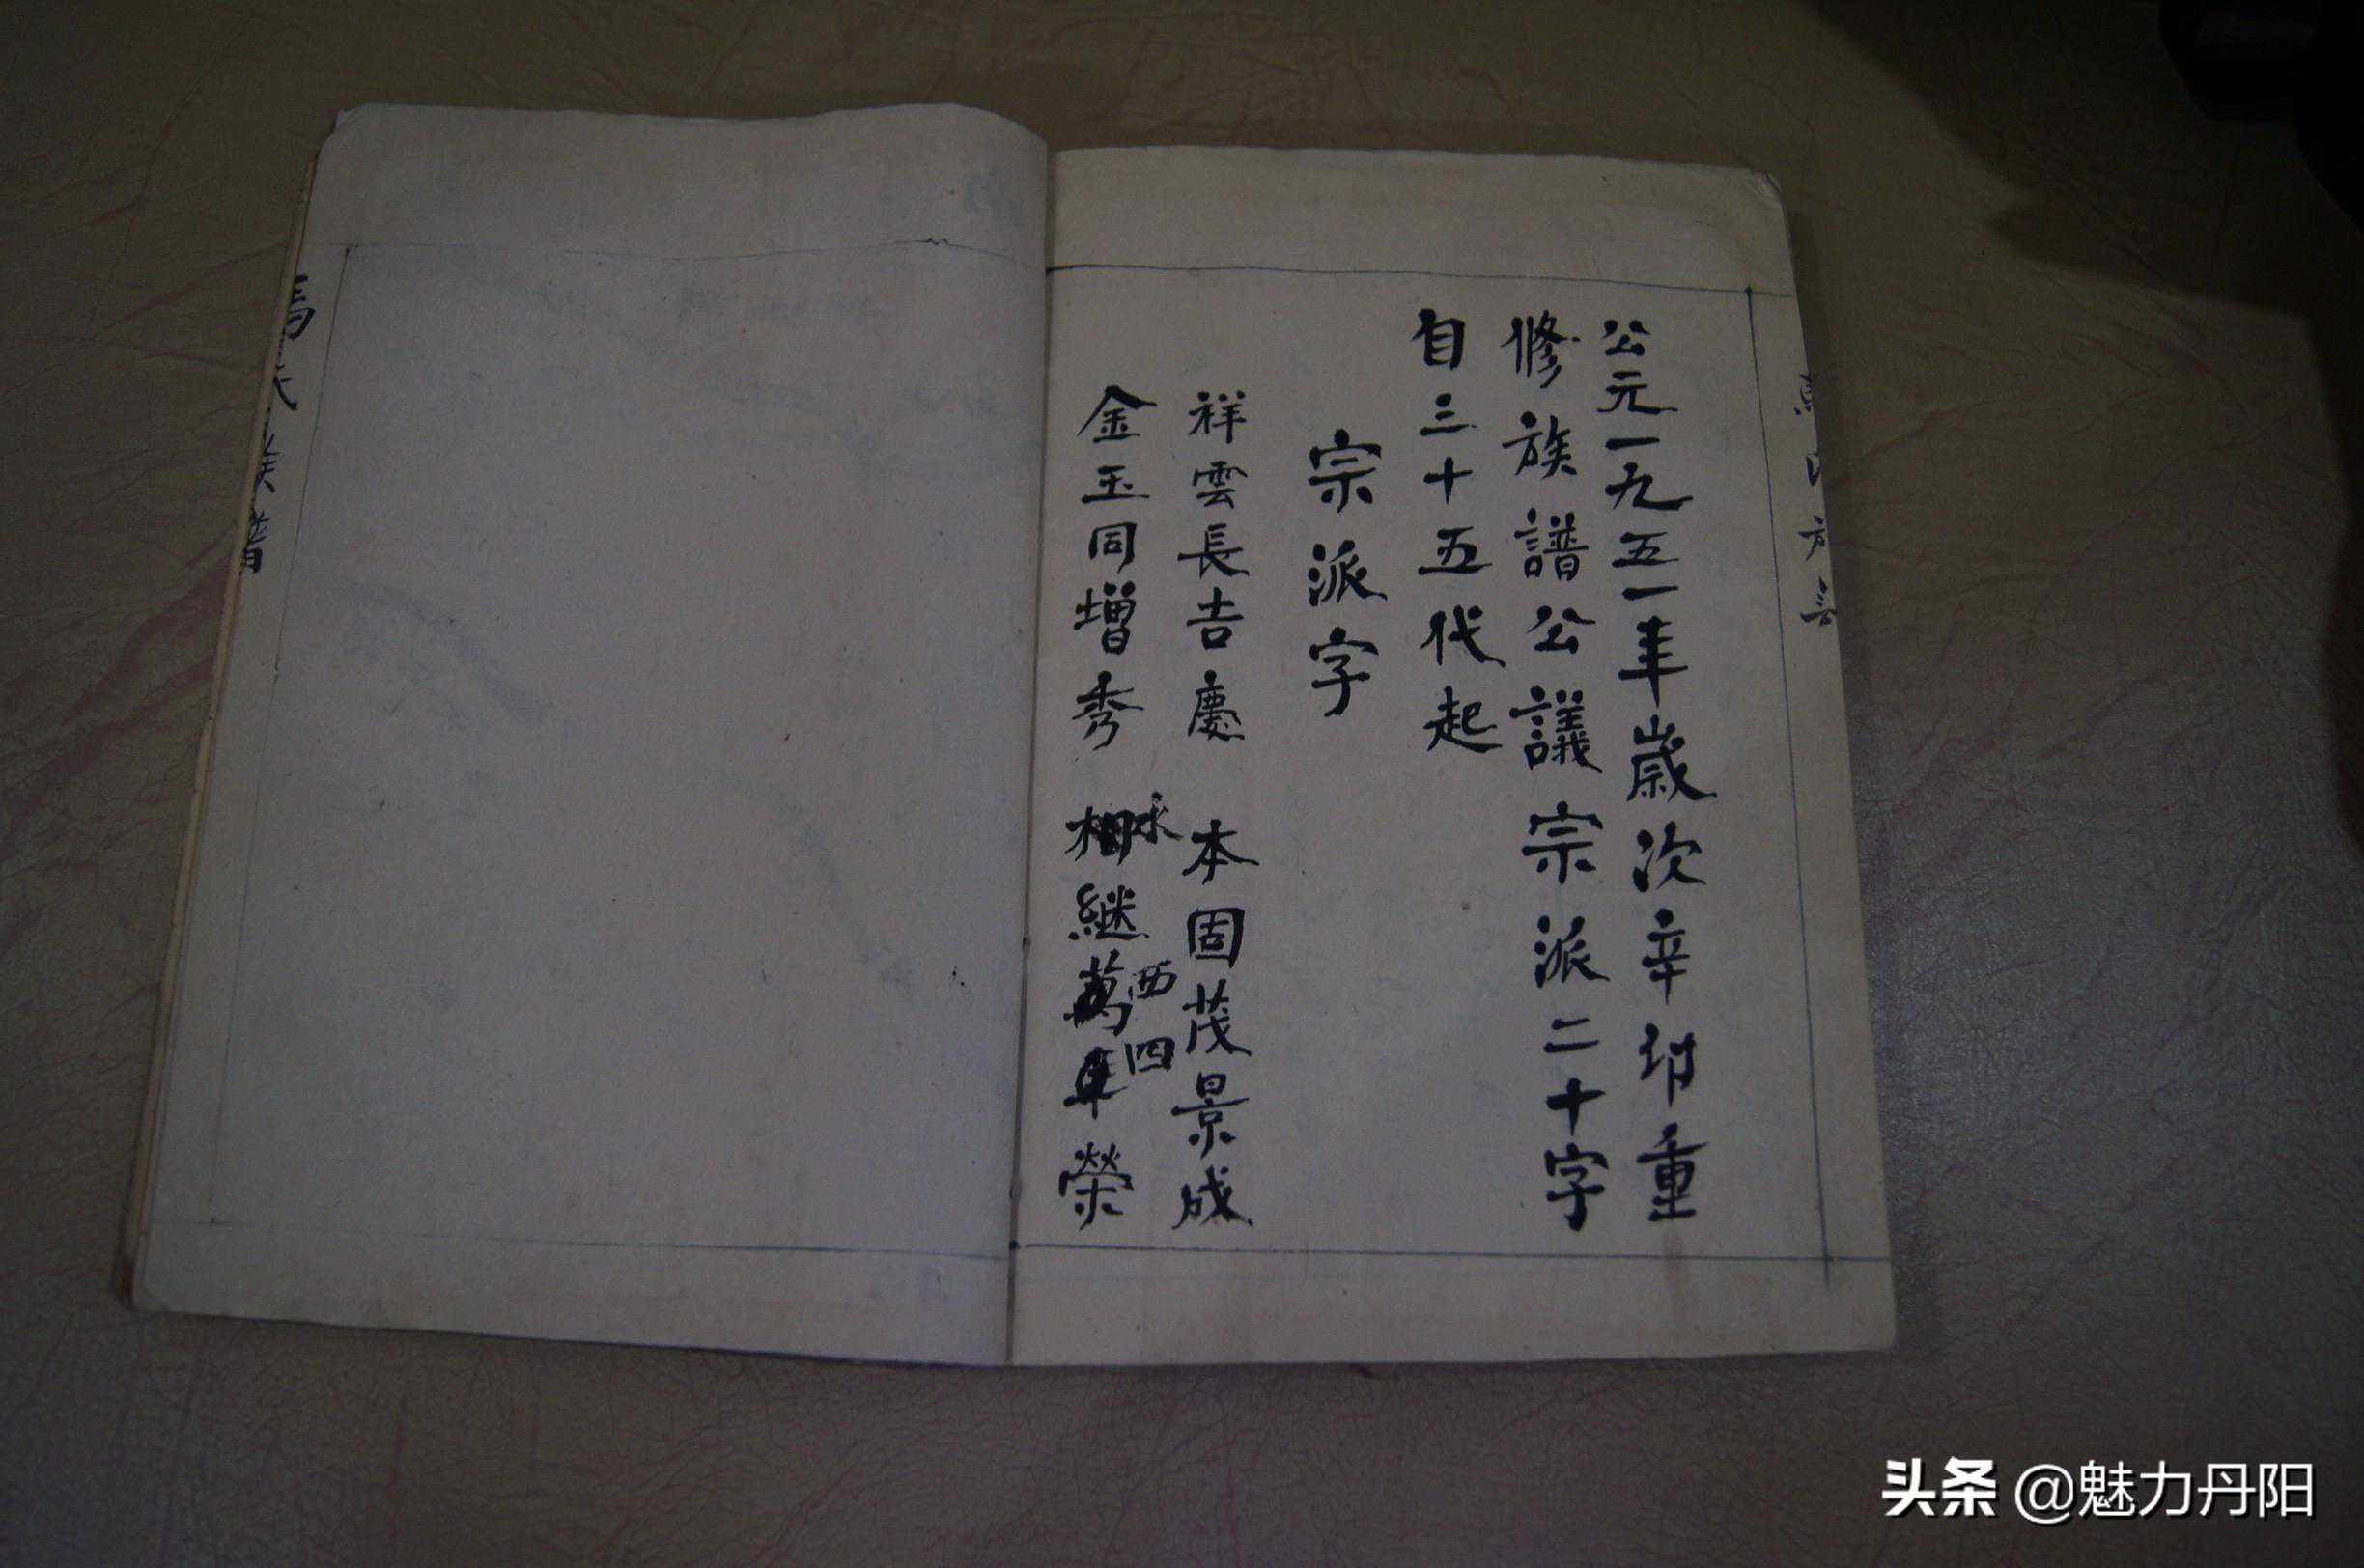 公元一九五一年歲次辛卯重
修族譜公議宗派二十字
自三十五代起
宗派字
祥雲長吉慶 本固茂景成
金玉同增秀 相繼萬年榮
永
西
四
馬氏族譜
头条 @魅力丹阳